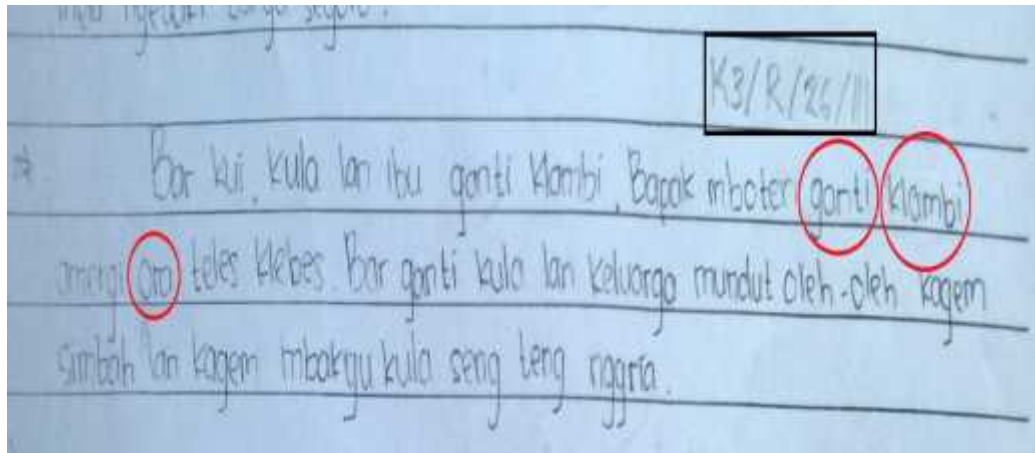 K3/R/26/III
Bar kui, kula lan ibu ganti klambi, Bapak mboten ganti klambi
amargi ora teles klebes. Bar ganti kula lan keluarga mundut oleh-oleh kagem
simbah lan kagem mbakyu kula seng teng nggria.